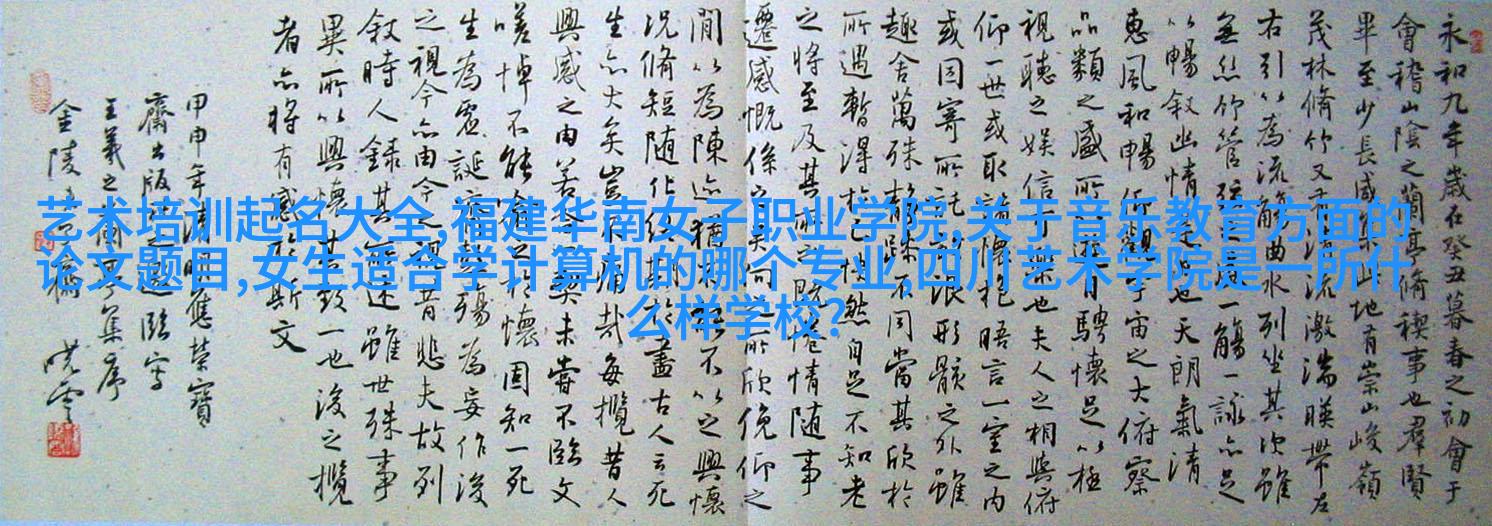 艺术培训起名大全,福建华南女子职业学院,关于音乐教育方面的
论文题目,女生适合学计算机的哪个专业,四川艺术学院是一所什
么样学校?
永和九年歲在癸丑暮春之初會于
會稽山陰之蘭亭脩稧事也群賢
畢至少長咸集此地有崇山峻嶺
茂林脩竹又有清流激湍暎帶左
右引以為流觴曲水列坐其次雖
無絲竹管弦之盛一觴一詠亦足
以暢敘幽情是日也天朗氣清
惠風和暢仰觀宇宙之大俯察
品類之盛所以遊目騁懷足以極
視聽之娛信可樂也夫人之相與俯
仰一世或取諸懷抱晤言一室之内
或因寄所託放浪形骸之外雖
趣舍萬殊靜躁不同當其欣於
所遇暫得於己怏然自足不知老
之將至及其所之既惓情隨事
遷感慨係之矣向之所欣俛仰之
間以為陳迹猶不能不以之興懷
況脩短隨化終期於盡古人云死
生亦大矣豈不痛哉每攬昔人
興感之由若合一契未嘗不臨文
嗟悼不能喻之於懷固知一死
生為虛誕齊彭殤為妄作後
之視今亦由今之視昔悲夫故列
敘時人錄其所述雖世殊事
異所以興懷其致一也後之攬
者亦將有感於斯文
甲申年清明應榮寶
齋出版社之邀臨寫
王羲之蘭亭集序
金陵